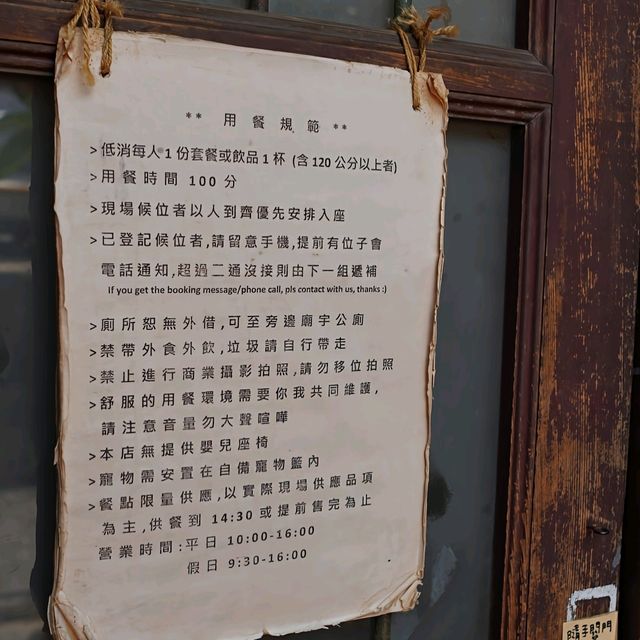 ** 用餐規範 **
>低消每人1份套餐或飲品1杯 (含120公分以上者)
>用餐時間 100分
>現場候位者以人到齊優先安排入座
>已登記候位者,請留意手機,提前有位子會
電話通知,超過二通沒接則由下一組遞補
If you get the booking message/phone call, pls contact with us, thanks :)
>廁所恕無外借,可至旁邊廟宇公廁
>禁帶外食外飲,垃圾請自行帶走
>禁止進行商業攝影拍照,請勿移位拍照
>舒服的用餐環境需要你我共同維護,
請注意音量勿大聲喧嘩
>本店無提供嬰兒座椅
>寵物需安置在自備寵物籃內
>餐點限量供應,以實際現場供應品項
為主,供餐到 14:30 或提前售完為止
營業時間:平日 10:00-16:00
假日 9:30-16:00
隨手關門